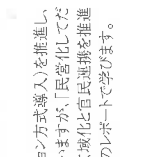 ョン方式導入)を推進し、
いますが、「民営化してだ
域化と官民連携を推進
のレポートで学びます。